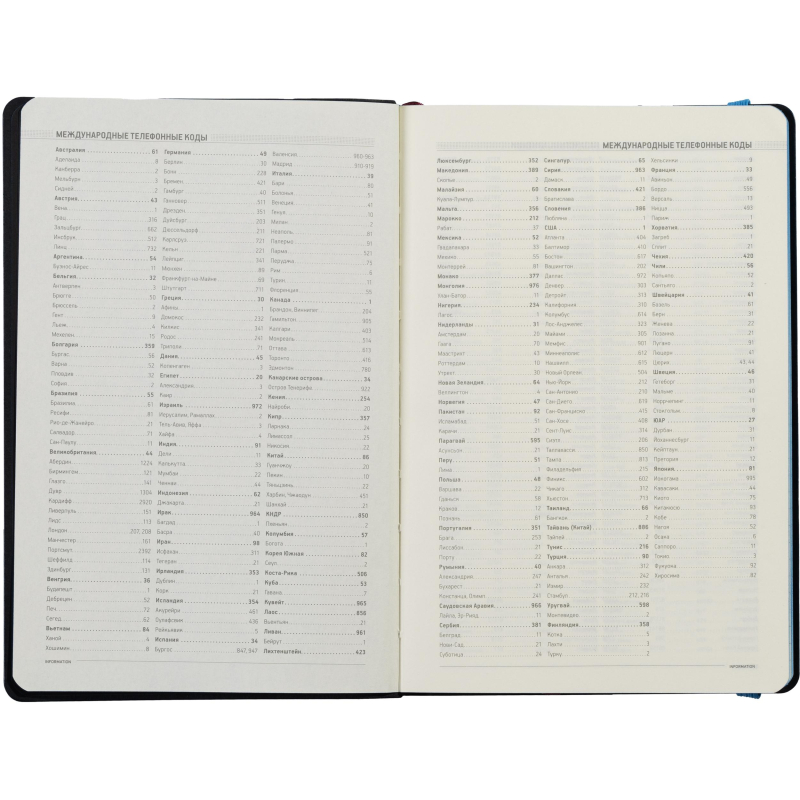 МЕЖДУНАРОДНЫЕ ТЕЛЕФОННЫЕ КОДЫ
Австралия 61
Аделаида 8
Канберра 2
Мельбурн 3
Сидней 2
Австрия 43
Вена 1
Грац 316
Зальцбург 662
Инсбрук 512
Линц 732
Аргентина 54
Буэнос-Айрес 11
Бельгия 32
Антверпен 3
Брюгге 50
Брюссель 2
Гент 9
Льеж 4
Мехелен 15
Болгария 359
Бургас 56
Варна 52
Пловдив 32
София 2
Бразилия 55
Бразилиа 61
Ресифи 81
Рио-де-Жанейро 21
Салвадор 71
Сан-Паулу 11
Великобритания 44
Абердин 1224
Бирмингем 121
Глазго 141
Дувр 1304
Кардифф 2920
Ливерпуль 151
Лидс 113
Лондон 207, 208
Манчестер 161
Портсмут 2392
Шеффилд 114
Эдинбург 131
Венгрия 36
Будапешт 1
Дебрецен 52
Печ 72
Сегед 62
Вьетнам 84
Ханой 4
Хошимин 8
INFORMATION
Германия 49
Берлин 30
Бонн 228
Бремен 421
Гамбург 40
Ганновер 511
Дрезден 351
Дуйсбург 203
Дюссельдорф 211
Карлсруэ 721
Кельн 221
Лейпциг 341
Мюнхен 89
Франкфурт-на-Майне 69
Штутгарт 711
Греция 30
Афины 1
Домокос 232
Килкис 341
Родос 241
Триполи 71
Дания 45
Копенгаген 3
Египет 20
Александрия 3
Каир 2
Израиль 972
Иерусалим, Рамаллах 2
Тель-Авив, Яффа 3
Хайфа 4
Индия 91
Дели 11
Калькутта 33
Мумбаи 22
Ченнаи 44
Индонезия 62
Джакарта 21
Ирак 964
Багдад 1
Басра 40
Иран 98
Исфахан 311
Тегеран 21
Ирландия 353
Дублин 1
Корк 21
Исландия 354
Акурейри 461
Рейкьявик 5
Испания 34
Бургос 847, 947
Валенсия 960-963
Мадрид 910-919
Италия 39
Бари 80
Болонья 51
Венеция 41
Генуя 10
Милан 2
Неаполь 81
Палермо 91
Парма 521
Перуджа 75
Рим 6
Турин 11
Флоренция 55
Канада 1
Брандон, Виннипег 204
Гамильтон 905
Калгари 403
Монреаль 514
Оттава 613
Торонто 416
Эдмонтон 780
Канарские острова 34
Остров Тенерифе 922
Кения 254
Найроби 20
Кипр 357
Ларнака 24
Лимассол 25
Никосия 22
Китай 86
Гуанчжоу 20
Пекин 10
Тяньцзинь 22
Харбин 451
Шанхай 21
КНДР 850
Пхеньян 2
Колумбия 57
Богота 1
Корея Южная 82
Сеул 2
Коста-Рика 506
Куба 53
Гавана 7
Кувейт 965
Лаос 856
Вьентьян 21
Ливан 961
Бейрут 1
Лихтенштейн 423
МЕЖДУНАРОДНЫЕ ТЕЛЕФОННЫЕ КОДЫ
Люксембург 352
Македония 389
Скопье 2
Малайзия 60
Куала-Лумпур 3
Мальта 356
Марокко 212
Рабат 37
Мексика 52
Гвадалахара 33
Мехико 55
Монтеррей 81
Монако 377
Монголия 976
Улан-Батор 11
Нигерия 234
Лагос 1
Нидерланды 31
Амстердам 20
Гаага 70
Маастрихт 43
Роттердам 10
Утрехт 30
Новая Зеландия 64
Веллингтон 4
Норвегия 47
Пакистан 92
Исламабад 51
Карачи 21
Парагвай 595
Асунсьон 21
Перу 51
Лима 1
Польша 48
Варшава 22
Гданьск 58
Краков 12
Познань 61
Португалия 351
Брага 253
Лиссабон 21
Порту 22
Румыния 40
Александрия 247
Бухарест 21
Констанца 241
Саудовская Аравия 966
Эр-Рияд 11
Сербия 381
Белград 11
Нови-Сад 21
Суботица 24
Сингапур 65
Сирия 963
Дамаск 11
Словакия 421
Братислава 2
Словения 386
Любляна 1
США 1
Атланта 404
Балтимор 410
Бостон 617
Вашингтон 202
Даллас 972
Денвер 303
Детройт 313
Калифорния 310
Колумбус 614
Лос-Анджелес 323
Майами 305
Мемфис 901
Миннеаполис 612
Нашвилл 615
Новый Орлеан 504
Нью-Йорк 212
Сан-Антонио 210
Сан-Диего 619
Сан-Франциско 415
Сан-Хосе 408
Сент-Луис 314
Сиэтл 206
Таллахасси 850
Тампа 813
Филадельфия 215
Финикс 602
Чикаго 312
Хьюстон 713
Таиланд 66
Бангкок 2
Тайвань (Китай) 886
Тайпей 2
Тунис 216
Турция 90
Анкара 312
Анталья 242
Измир 232
Стамбул 212, 216
Уругвай 598
Монтевидео 2
Финляндия 358
Котка 5
Лахти 3
Турку 2
Хельсинки 9
Франция 33
Авиньон 49
Бордо 556
Версаль 13
Ницца 493
Париж 1
Хорватия 385
Загреб 1
Сплит 21
Чехия 420
Чили 56
Сантьяго 2
Швейцария 41
Базель 61
Берн 31
Женева 22
Лозанна 21
Лугано 91
Люцерн 41
Цюрих 43, 44
Швеция 46
Гетеборг 31
Мальме 40
Норрчепинг 11
Стокгольм 8
ЮАР 27
Дурбан 31
Йоханнесбург 11
Кейптаун 21
Претория 12
Япония 81
Кавасаки 44
Киото 75
Китакюсю 93
Кобе 78
Нагоя 52
Осака 6
Саппоро 11
Токио 3
Фукуока 92
Хиросима 82
INFORMATION